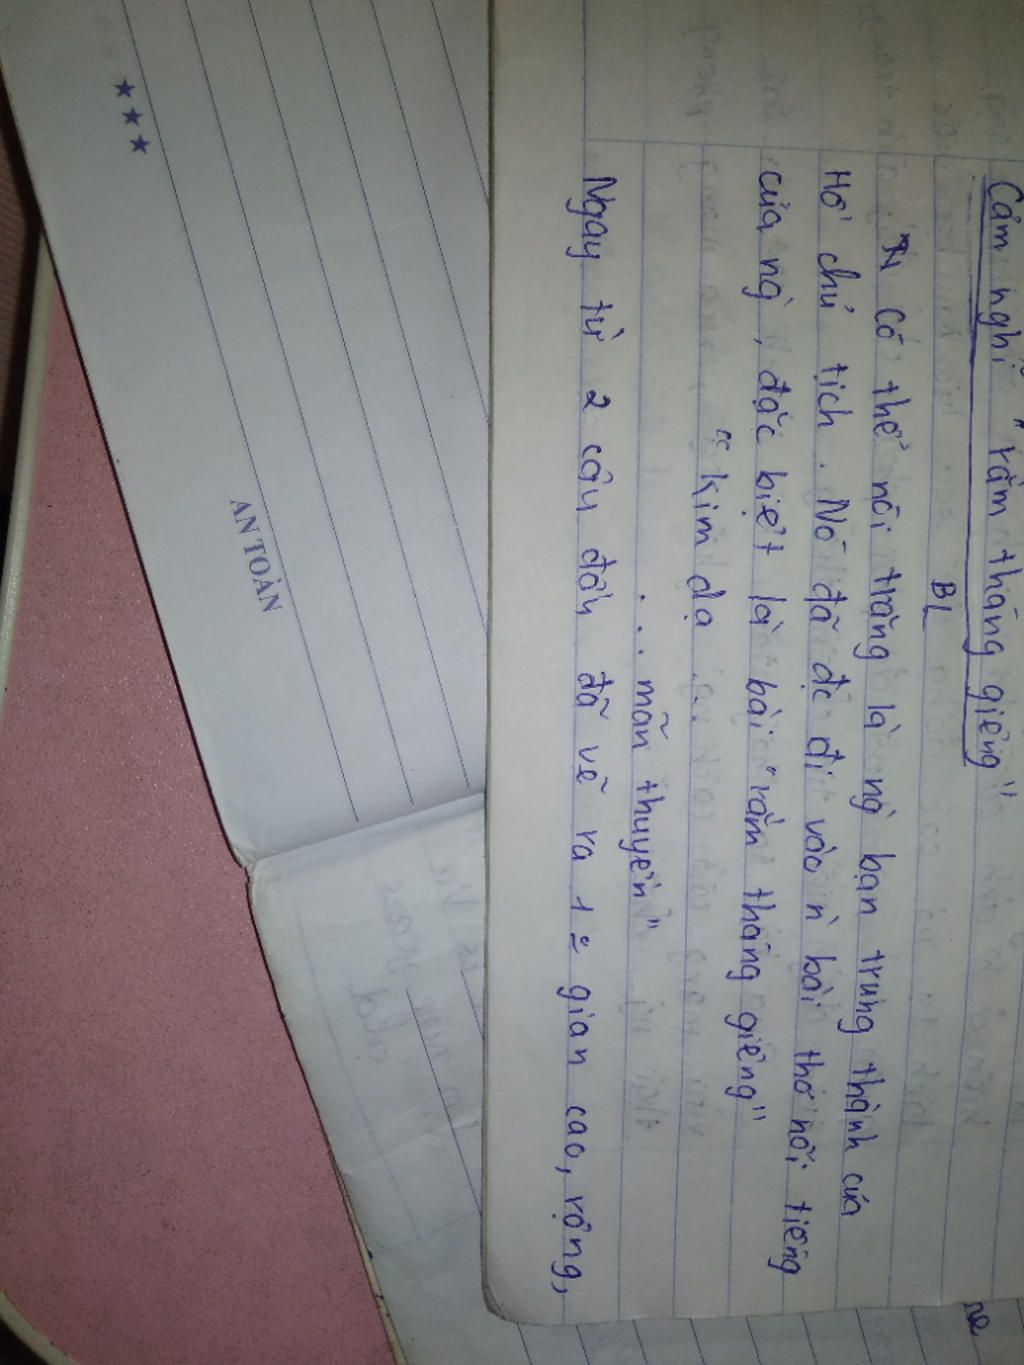 Cảm nghĩ "rằm tháng giêng"
BL
Có thể nói trăng là ng` bạn trung thành của
Hồ chủ tịch. Nó đã đc đi vào n` bài thơ nổi tiếng
của ng`, đặc biệt là bài "rằm tháng giêng"
"kim dạ ...
... mãn thuyền"
Ngay từ 2 câu đầu đã vẽ ra 1 ≈ gian cao, rộng,
★★★
AN TOÀN